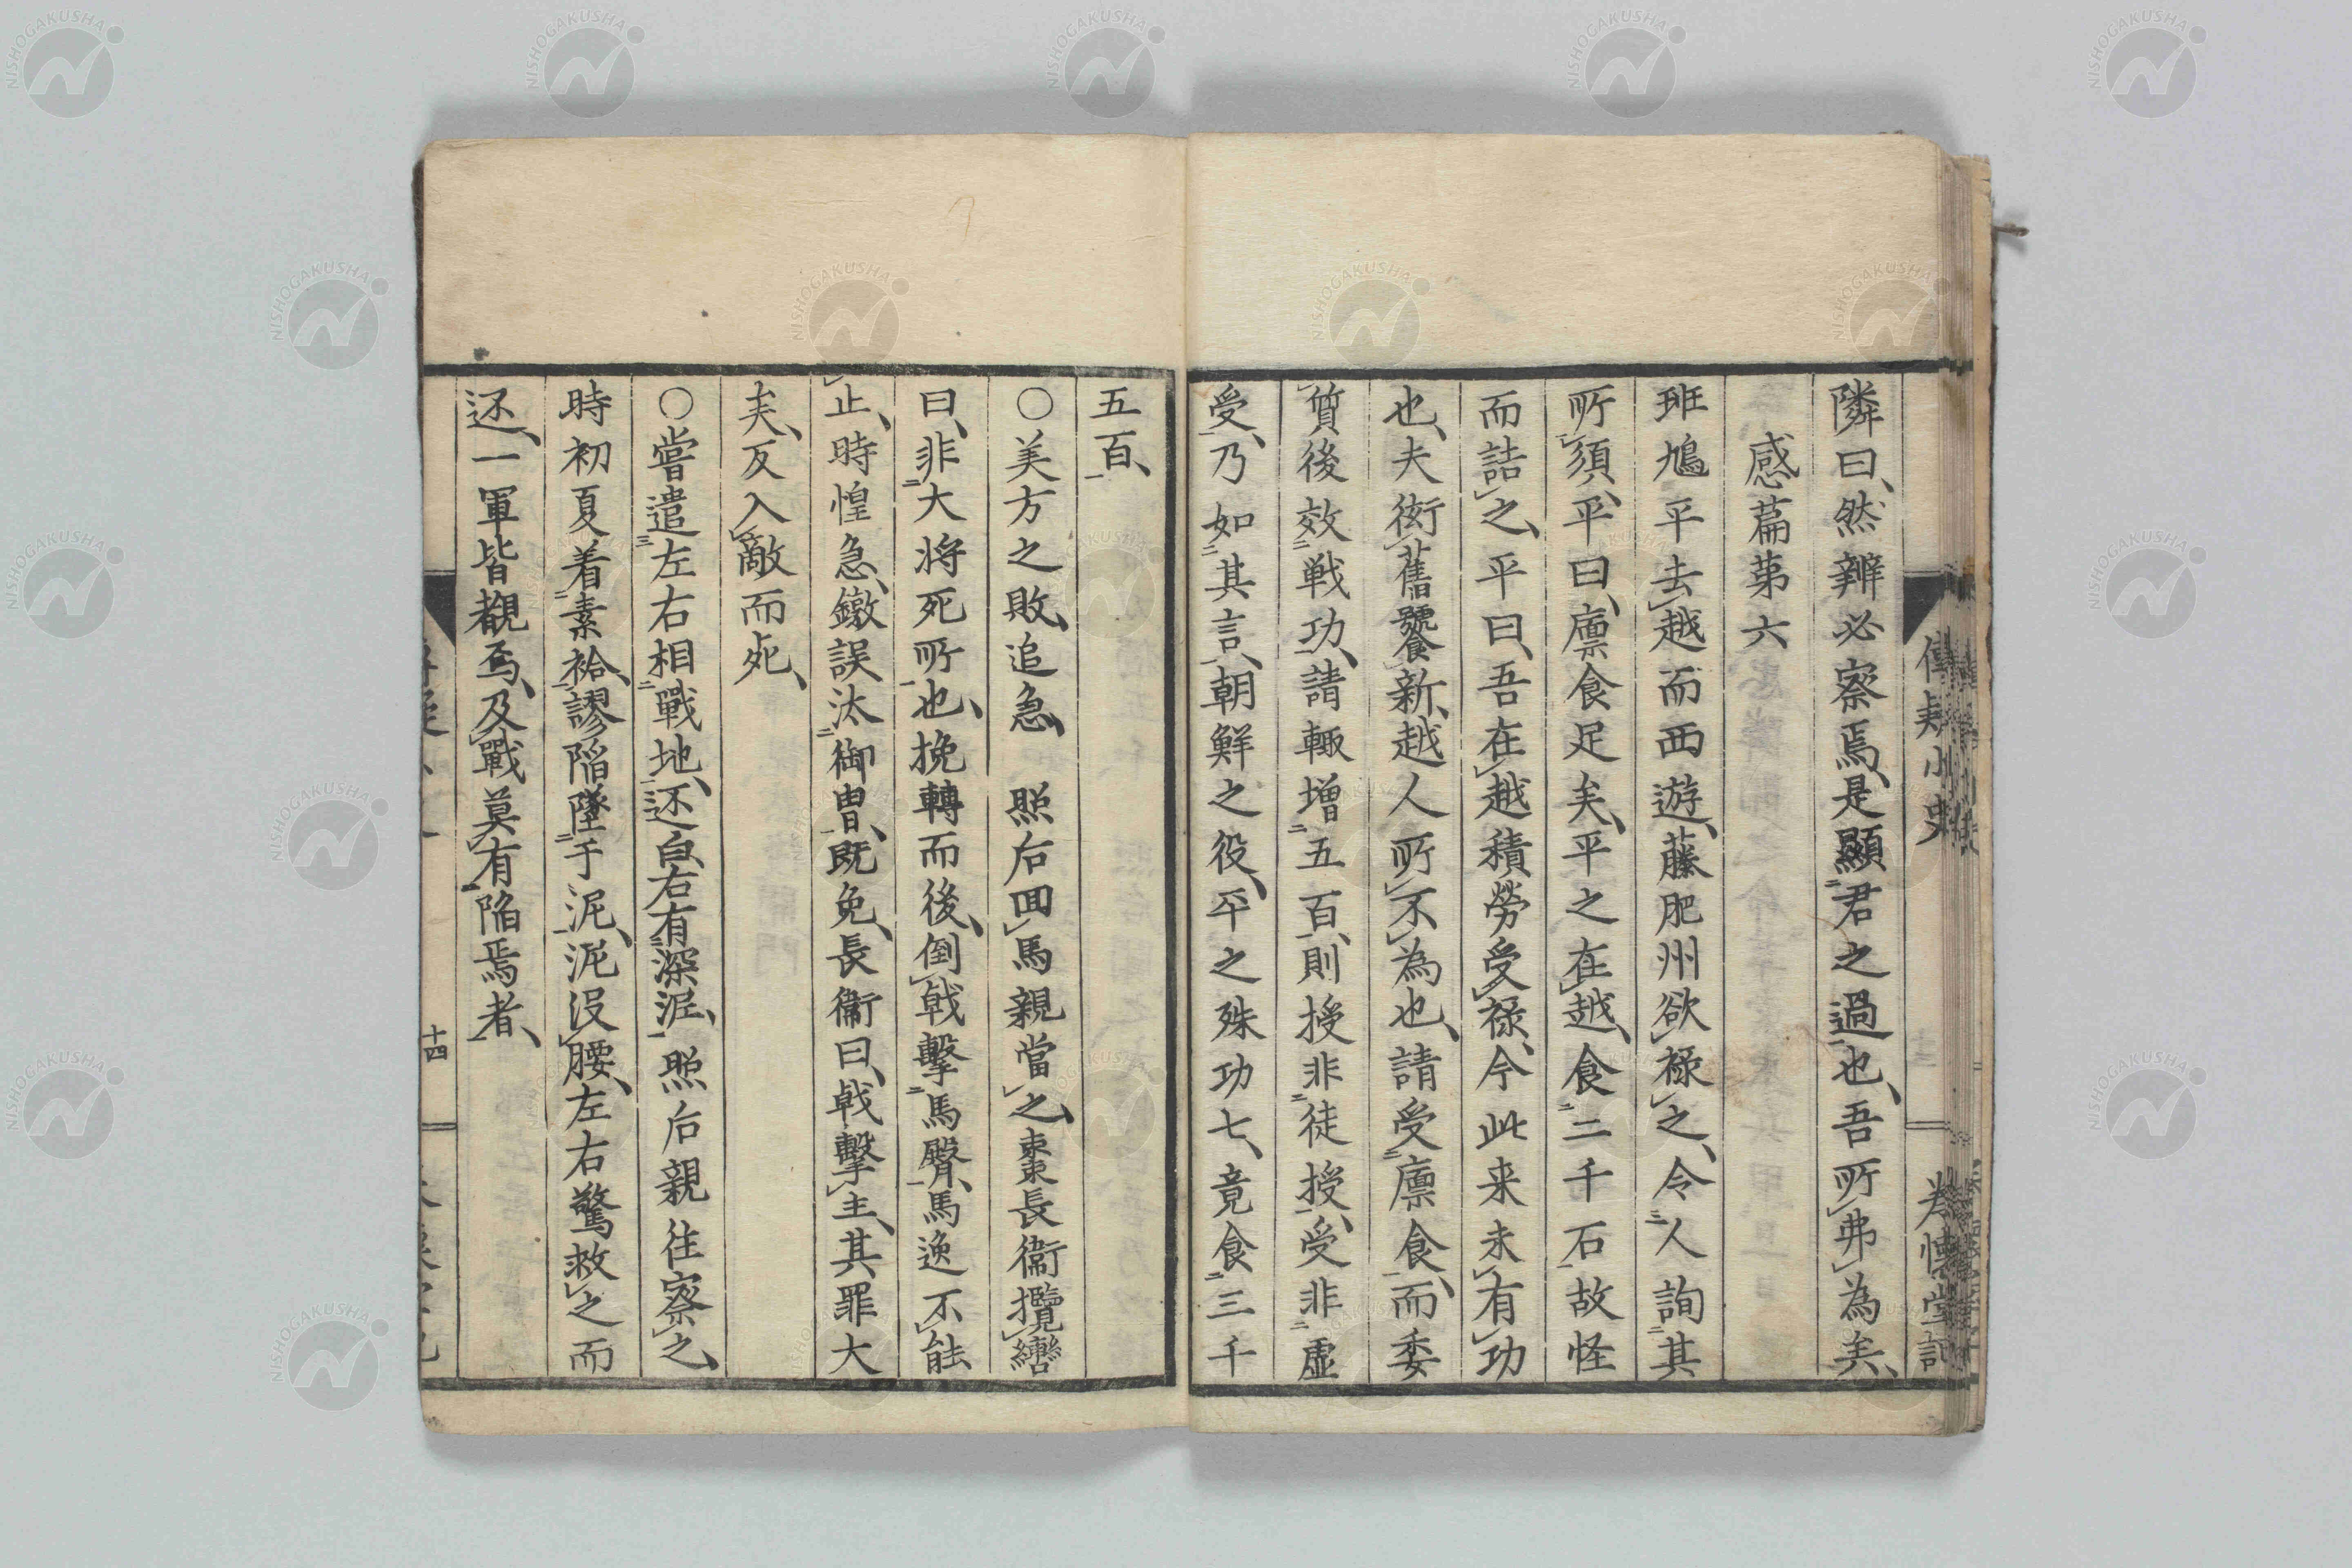 隣曰、然辨必察焉、是顯君之過也、吾所弗為矣、
感篇苐六
班鳩平去越而西遊、藤肥州欲禄之、令人詢其
所須、平曰、廪食足矣、平之在越、食二千石、故怪
而詰之、平曰、吾在越積勞受禄、今此来未有功
也、夫衒舊饕新、越人所不為也、請受廪食、而委
質後效戦功、請輙增五百、則授非徒授、受非虛
受、乃如其言、朝鮮之役、平之殊功七、竟食三千
五百、
〇美方之敗、追急、照后囬馬親當之、棗長衞攬轡
曰、非大将死所也、挽轉而後、倒戟擊馬臀、馬逸不能
止、時惶急、鐓誤汰御冑、既免、長衞曰、戟擊主、其罪大
矣、反入敵而死、
〇嘗遣左右相戰地、还白、右有深泥、照后親往察之、
時初夏、着素袷、謬陥墜于泥、泥没腰、左右驚救之而
还、一軍皆觀焉、及戰莫有陥焉者、
十四
NISHOGAKUSHA